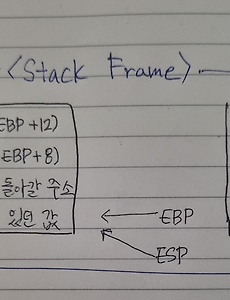 <Stack Frame>
EBP +12)
EBP+8)
돌아갈 주소
있던 값
EBP
ESP